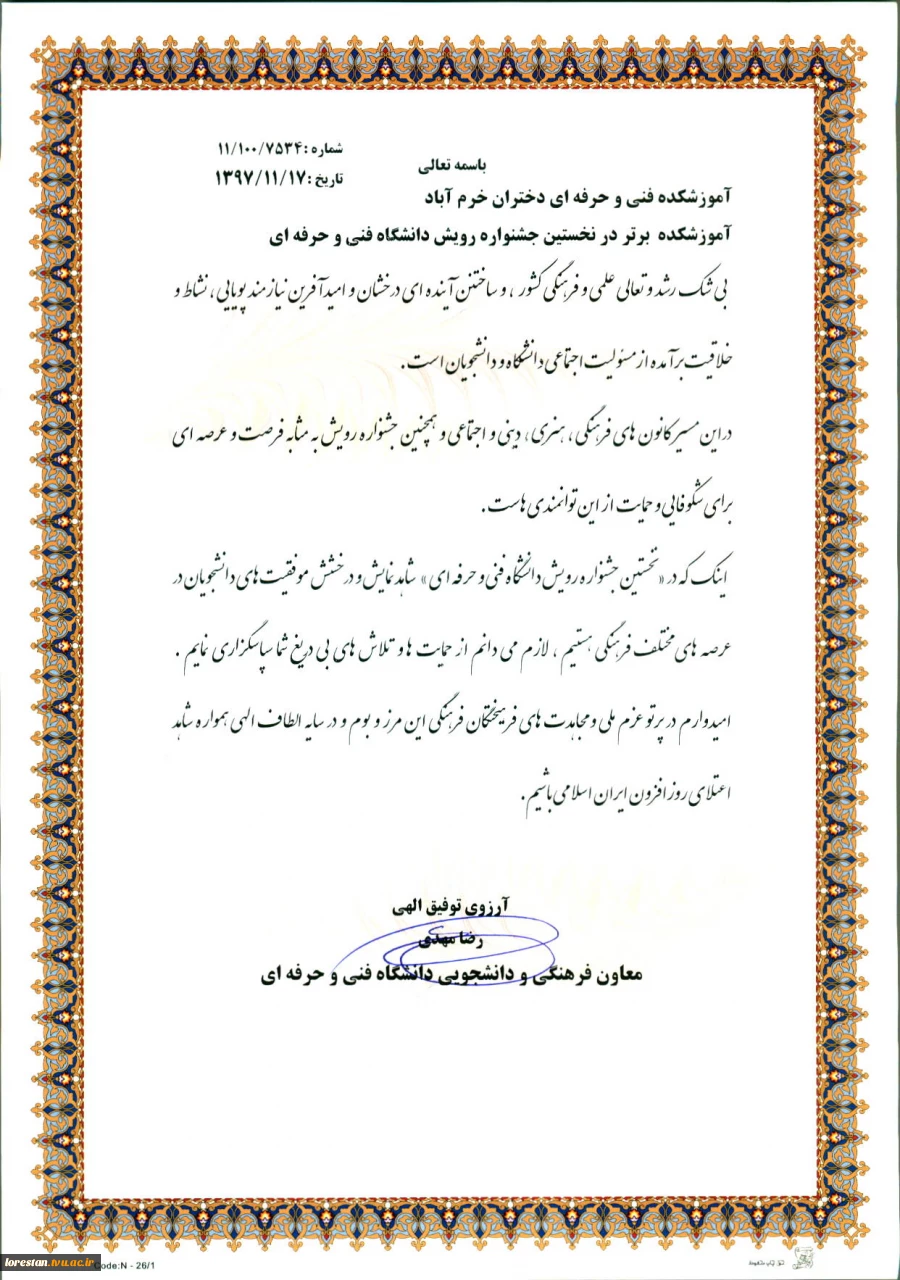 شماره :۱۱/۱۰۰/۷۵۳۴
باسمه تعالی
تاریخ :۱۳۹۷/۱۱/۱۷
آموزشکده فنی و حرفه ای دختران خرم آباد
آموزشکده برتر در نخستین جشنواره رویش دانشگاه فنی و حرفه ای
بی شک رشد و تعالی علمی و فرهنگی کشور ، و ساختن آینده ای درخشان و امیدآفرین نیازمند پویایی ، نشاط و
خلاقیت برآمده از مسئولیت اجتماعی دانشگاه و دانشجویان است.
در این مسیر کانون های فرهنگی ، هنری، دینی و اجتماعی و همچنین جشنواره رویش به مثابه فرصت و عرصه ای
برای شکوفایی و حمایت از این توانمندی هاست .
اینک که در «نخستین جشنواره رویش دانشگاه فنی و حرفه ای» شاهد نمایش و درخشش موفقیت های دانشجویان در
عرصه های مختلف فرهنگی هستیم ، لازم می دانم از حمایت ها و تلاش های بی دریغ شما سپاسگزاری نمایم .
امیدوارم در پرتو عزم ملی و مجاهدت های فرهیختگان فرهنگی این مرز و بوم و در سایه الطاف الهی همواره شاهد
اعتلای روزافزون ایران اسلامی باشیم .
آرزوی توفیق الهی
رضا مهدی
معاون فرهنگی و دانشجویی دانشگاه فنی و حرفه ای
lorestan.tvu.ac.ir
Code:N - 26/1